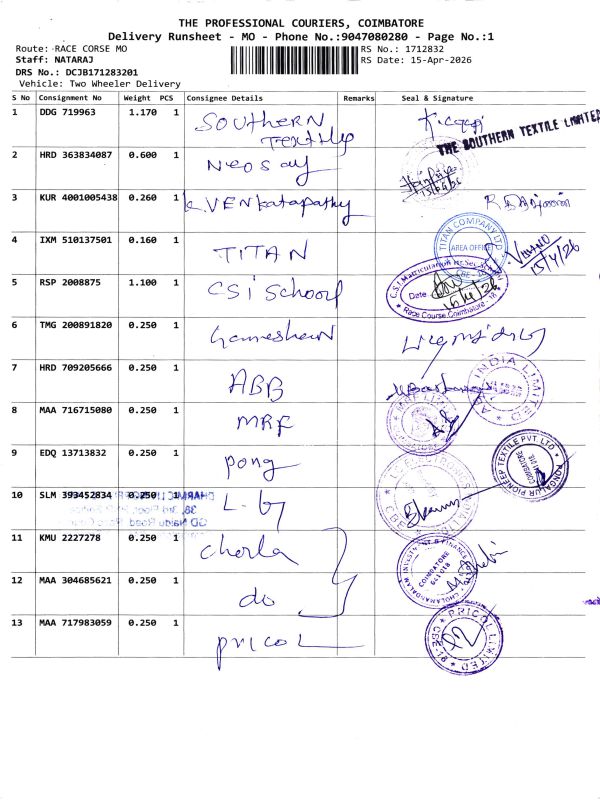 THE PROFESSIONAL COURIERS, COIMBATORE
Delivery Runsheet - MO - Phone No.:9047080280 - Page No.:1
Route: RACE CORSE MO
RS No.: 1712832
Staff: NATARAJ
RS Date: 15-Apr-2026
DRS No.: DCJB171283201
Vehicle: Two Wheeler Delivery
S No Consignment No Weight PCS Consignee Details Remarks Seal & Signature
1 DDG 719963 1.170 1 SOUTHERN
THE SOUTHERN TEXTILE LIMITED
2 HRD 363834087 0.600 1
15/04/26
3 KUR 4001005438 0.260 1 K.VENkatapathy
4 IXM 510137501 0.160 1 TITAN
TITAN COMPANY LTD
AREA OFFICE
CBE
15/4/26
5 RSP 2008875 1.100 1 CSI School
C.S.I. Matriculation Hr. Sec.
Date
15/4/26
Race Course, Coimbatore - 18
6 TMG 200891820 0.250 1
7 HRD 709205666 0.250 1 ABB
INDIA LIMITED
8 MAA 716715080 0.250 1 MRF
9 EDQ 13713832 0.250 1 pong
PIONEER TEXTILE PVT. LTD
COIMBATORE
10 SLM 393452834 0.250 1
CBE
11 KMU 2227278 0.250 1 Chorla
CHOLAMANDALAM INVESTMENT & FINANCE
COIMBATORE
641 018
12 MAA 304685621 0.250 1 do
13 MAA 717983059 0.250 1 PRICOL
PRICOL LIMITED
CBE-18